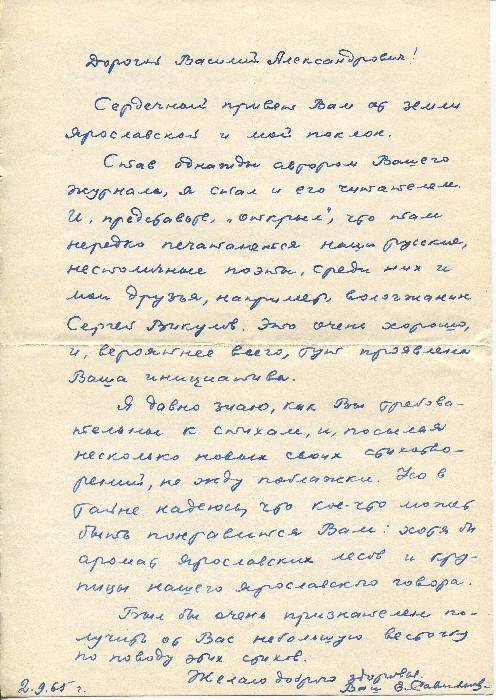 Дорогой Василий Александрович!
Сердечный привет Вам от земли
Ярославской и мой поклон.
Став однажды автором Вашего
журнала, я стал и его читателем.
И, представьте, „открыл", что там
нередко печатаются наши русские,
нестоличные поэты, среди них и
мои друзья, например, вологжанин
Сергей Викулов. Это очень хорошо,
и, вероятнее всего, тут проявлена
Ваша инициатива.
Я давно знаю, как Вы требова-
тельны к стихам, и, посылая
несколько новых своих стихотво-
рений, не жду поблажки. Но в
тайне надеюсь, что кое-что может
быть понравится Вам: хотя бы
аромат Ярославских лесов и кру-
пицы нашего Ярославского говора.
Был бы очень признателен по-
лучить от Вас небольшую весточку
по поводу этих стихов.
Желаю доброго здоровья.
2.9.65 г. Ваш